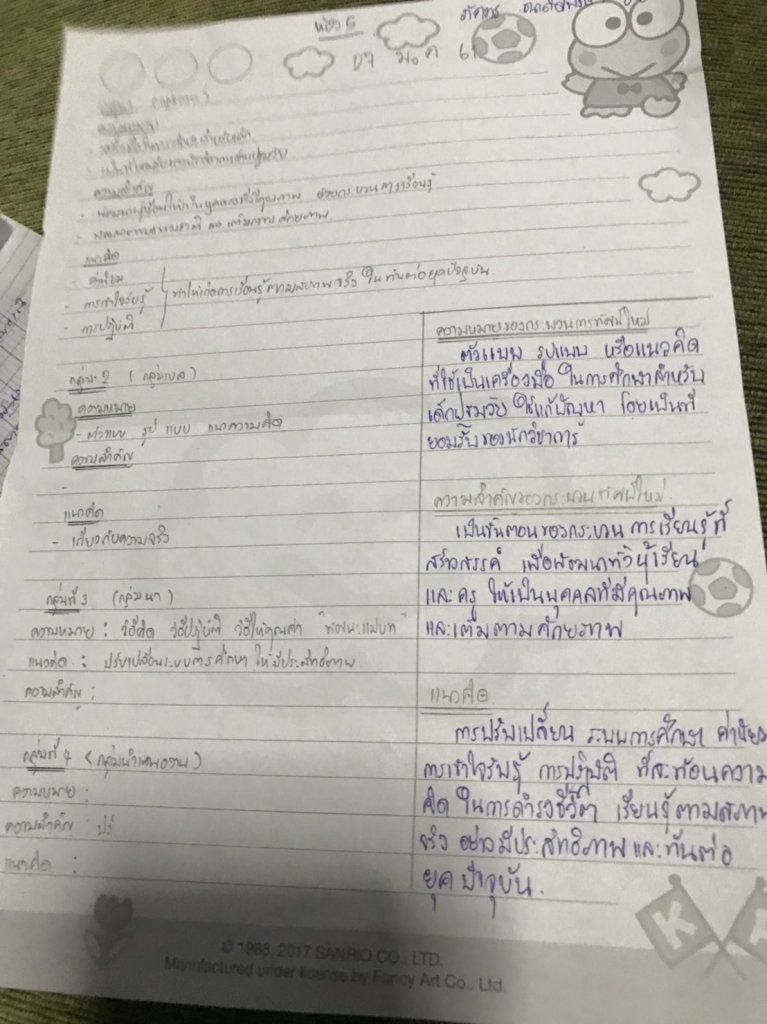 ห้อง 5
09 ม.ค 61
ความสำคัญ
- พัฒนาผู้เรียนให้เป็นบุคคลที่มีคุณภาพ ด้วยกระบวนการเรียนรู้
แนวคิด
- ค่านิยม
- การเข้าใจรับรู้
- การปฏิบัติ
ทำให้เกิดการเรียนรู้ตามสภาพจริง ในทันต่อยุคปัจจุบัน
กลุ่ม 2 (กลุ่มเบล)
ความหมาย
- ตัวแบบ รูปแบบ แนวความคิด
ความสำคัญ
-
แนวคิด
- เกี่ยวกับความจริง
กลุ่มที่ 3 (กลุ่มนา)
ความหมาย : วิธีคิด วิธีปฏิบัติ วิธีให้คุณค่า "ทัศนะแม่บท"
แนวคิด : ปรับเปลี่ยนระบบการศึกษา ให้มีประสิทธิภาพ
ความสำคัญ :
กลุ่มที่ 4 (กลุ่มนำเสนองาน)
ความหมาย :
ความสำคัญ : ปรั
แนวคิด :
ความหมายของกระบวนการทัศน์ใหม่
ตัวแบบ รูปแบบ หรือแนวคิด
ที่ใช้เป็นเครื่องมือ ในการศึกษาสำหรับ
เด็กปฐมวัย ใช้แก้ปัญหา โดยเป็นที่
ยอมรับของนักวิชาการ
ความสำคัญของกระบวนทัศน์ใหม่
เป็นขั้นตอนของกระบวนการเรียนรู้ที่
สร้างสรรค์ เพื่อพัฒนาทั้งผู้เรียน
และครู ให้เป็นบุคคลที่มีคุณภาพ
และเต็มตามศักยภาพ
แนวคิด
การปรับเปลี่ยน ระบบการศึกษา ค่านิยม
การเข้าใจรับรู้ การปฏิบัติ ที่สะท้อนความ
คิด ในการดำรงชีวิต เรียนรู้ตามสภาพ
จริง อย่างมีประสิทธิภาพ และทันต่อ
ยุคปัจจุบัน.
K K
© 1988, 2017 SANRIO CO., LTD.
Manufactured under license by Fancy Art Co., Ltd.